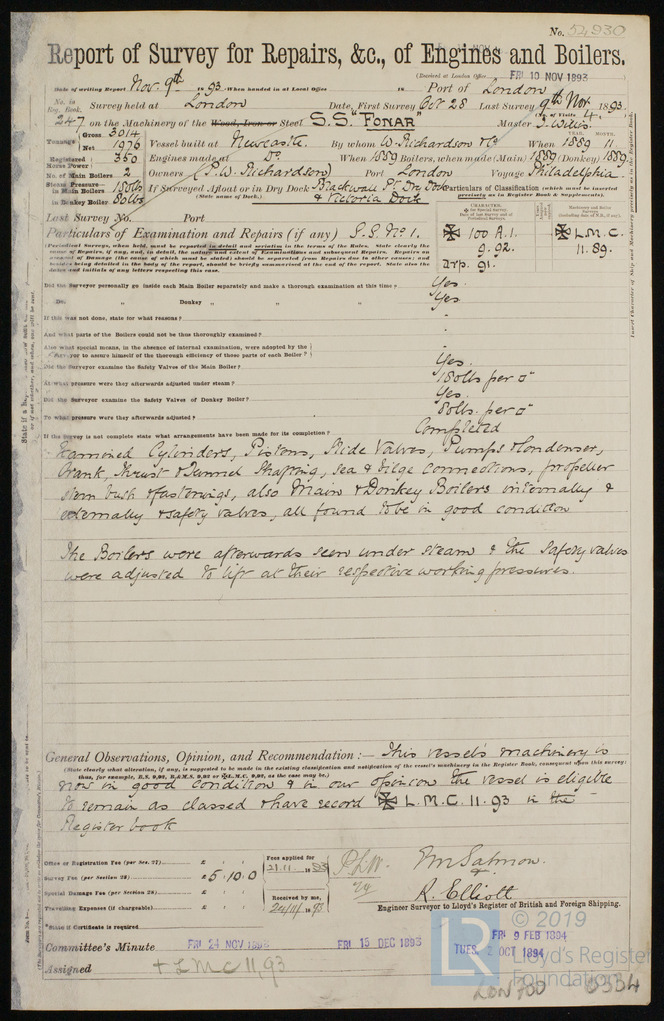 No. 54930
Report of Survey for Repairs, &c., of Engines and Boilers.
(Received at London Office FRI 10 NOV 1893
Date of writing Report Nov. 9th 1893 When handed in at Local Office 18 Port of London
No. in Reg. Book. Survey held at London Date, First Survey Oct 28 Last Survey 9th Nov 1893.
(No. of Visits 4.)
247 on the Machinery of the Wood, Iron or Steel S.S. "Fonar" Master J. Wills
Tonnage Gross 3014 Net 1976 Vessel built at Newcastle. By whom W. Richardson & Co When 1889 11
YEAR. MONTH.
Registered Horse Power 350 Engines made at Do. When 1889 Boilers, when made (Main) 1889 (Donkey) 1889.
No. of Main Boilers 2 Owners (P. W. Richardson) Port London Voyage Philadelphia.
Steam Pressure in Main Boilers 150lbs If Surveyed Afloat or in Dry Dock Blackwall Pt. Dry Dock
in Donkey Boiler 80lbs (State name of Dock.) & Victoria Dock
Particulars of Classification (which must be inserted precisely as in Register Book & Supplements).
Last Survey No. Port
Particulars of Examination and Repairs (if any) S.S. No 1.
100 A.1. L.M.C.
9.92. 11.89.
91.
(Periodical Surveys, when held, must be reported in detail and seriatim in the terms of the Rules. State clearly the
Did the Surveyor personally go inside each Main Boiler separately and make a thorough examination at this time? Yes.
Do. " Donkey " " " Yes.
If this was not done, state for what reasons?
And what parts of the Boilers could not be thus thoroughly examined?
Also what special means, in the absence of internal examination, were adopted by the
Surveyor to assure himself of the thorough efficiency of those parts of each Boiler?
Did the Surveyor examine the Safety Valves of the Main Boiler? Yes.
At what pressure were they afterwards adjusted under steam? 150lbs per □"
Did the Surveyor examine the Safety Valves of Donkey Boiler? Yes.
To what pressure were they afterwards adjusted? 80lbs. per □"
If the Survey is not complete state what arrangements have been made for its completion? Completed
Examined Cylinders, Pistons, Slide Valves, Pumps & Condenser,
Crank, Thrust & Tunnel Shafting, Sea & bilge connections, propeller
stern bush & fastenings, also Main & Donkey Boilers internally &
externally & safety valves, all found to be in good condition
The Boilers were afterwards seen under steam & the safety valves
were adjusted to lift at their respective working pressures.
General Observations, Opinion, and Recommendation:— This vessel's machinery is
(State clearly what alteration, if any, is suggested to be made in the existing classification and notification of the vessel's machinery in the Register Book, consequent upon this survey;
thus, for example, B.S. 9,92, B.&M.S. 9,92 or L.M.C. 9,92, as the case may be.)
now in good condition & in our opinion the vessel is eligible
to remain as classed & have record L.M.C. 11.93 in the
Register book
Office or Registration Fee (per Sec. 27) £ : :
Survey Fee (per Section 28) £ 5 . 10 . 0
Special Damage Fee (per Section 28) £ : :
Travelling Expenses (if chargeable) £ : :
Fees applied for 21.11. 1893
Received by me, 24/11/ 1893
Wm Salmon.
&
R. Elliott
Engineer Surveyor to Lloyd's Register of British and Foreign Shipping.
*State if Certificate is required
Committee's Minute FRI 24 NOV 1893 FRI 15 DEC 1893 FRI 9 FEB 1894
TUES. 2 OCT 1894
Assigned + LMC 11,93
© 2019
LR
Lloyd's Register
Foundation
LON700 - 0334